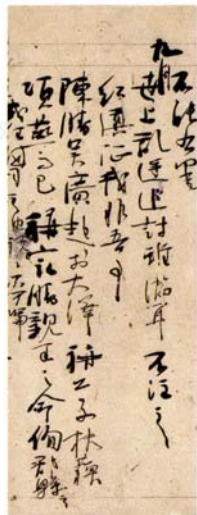 九月
世上乱逆追討雖満耳 不注之
紅旗征戎非吾事
陳勝呉廣起於大澤 稱公子扶蘓
項燕而已 稱最勝親王之命徇郡縣云々